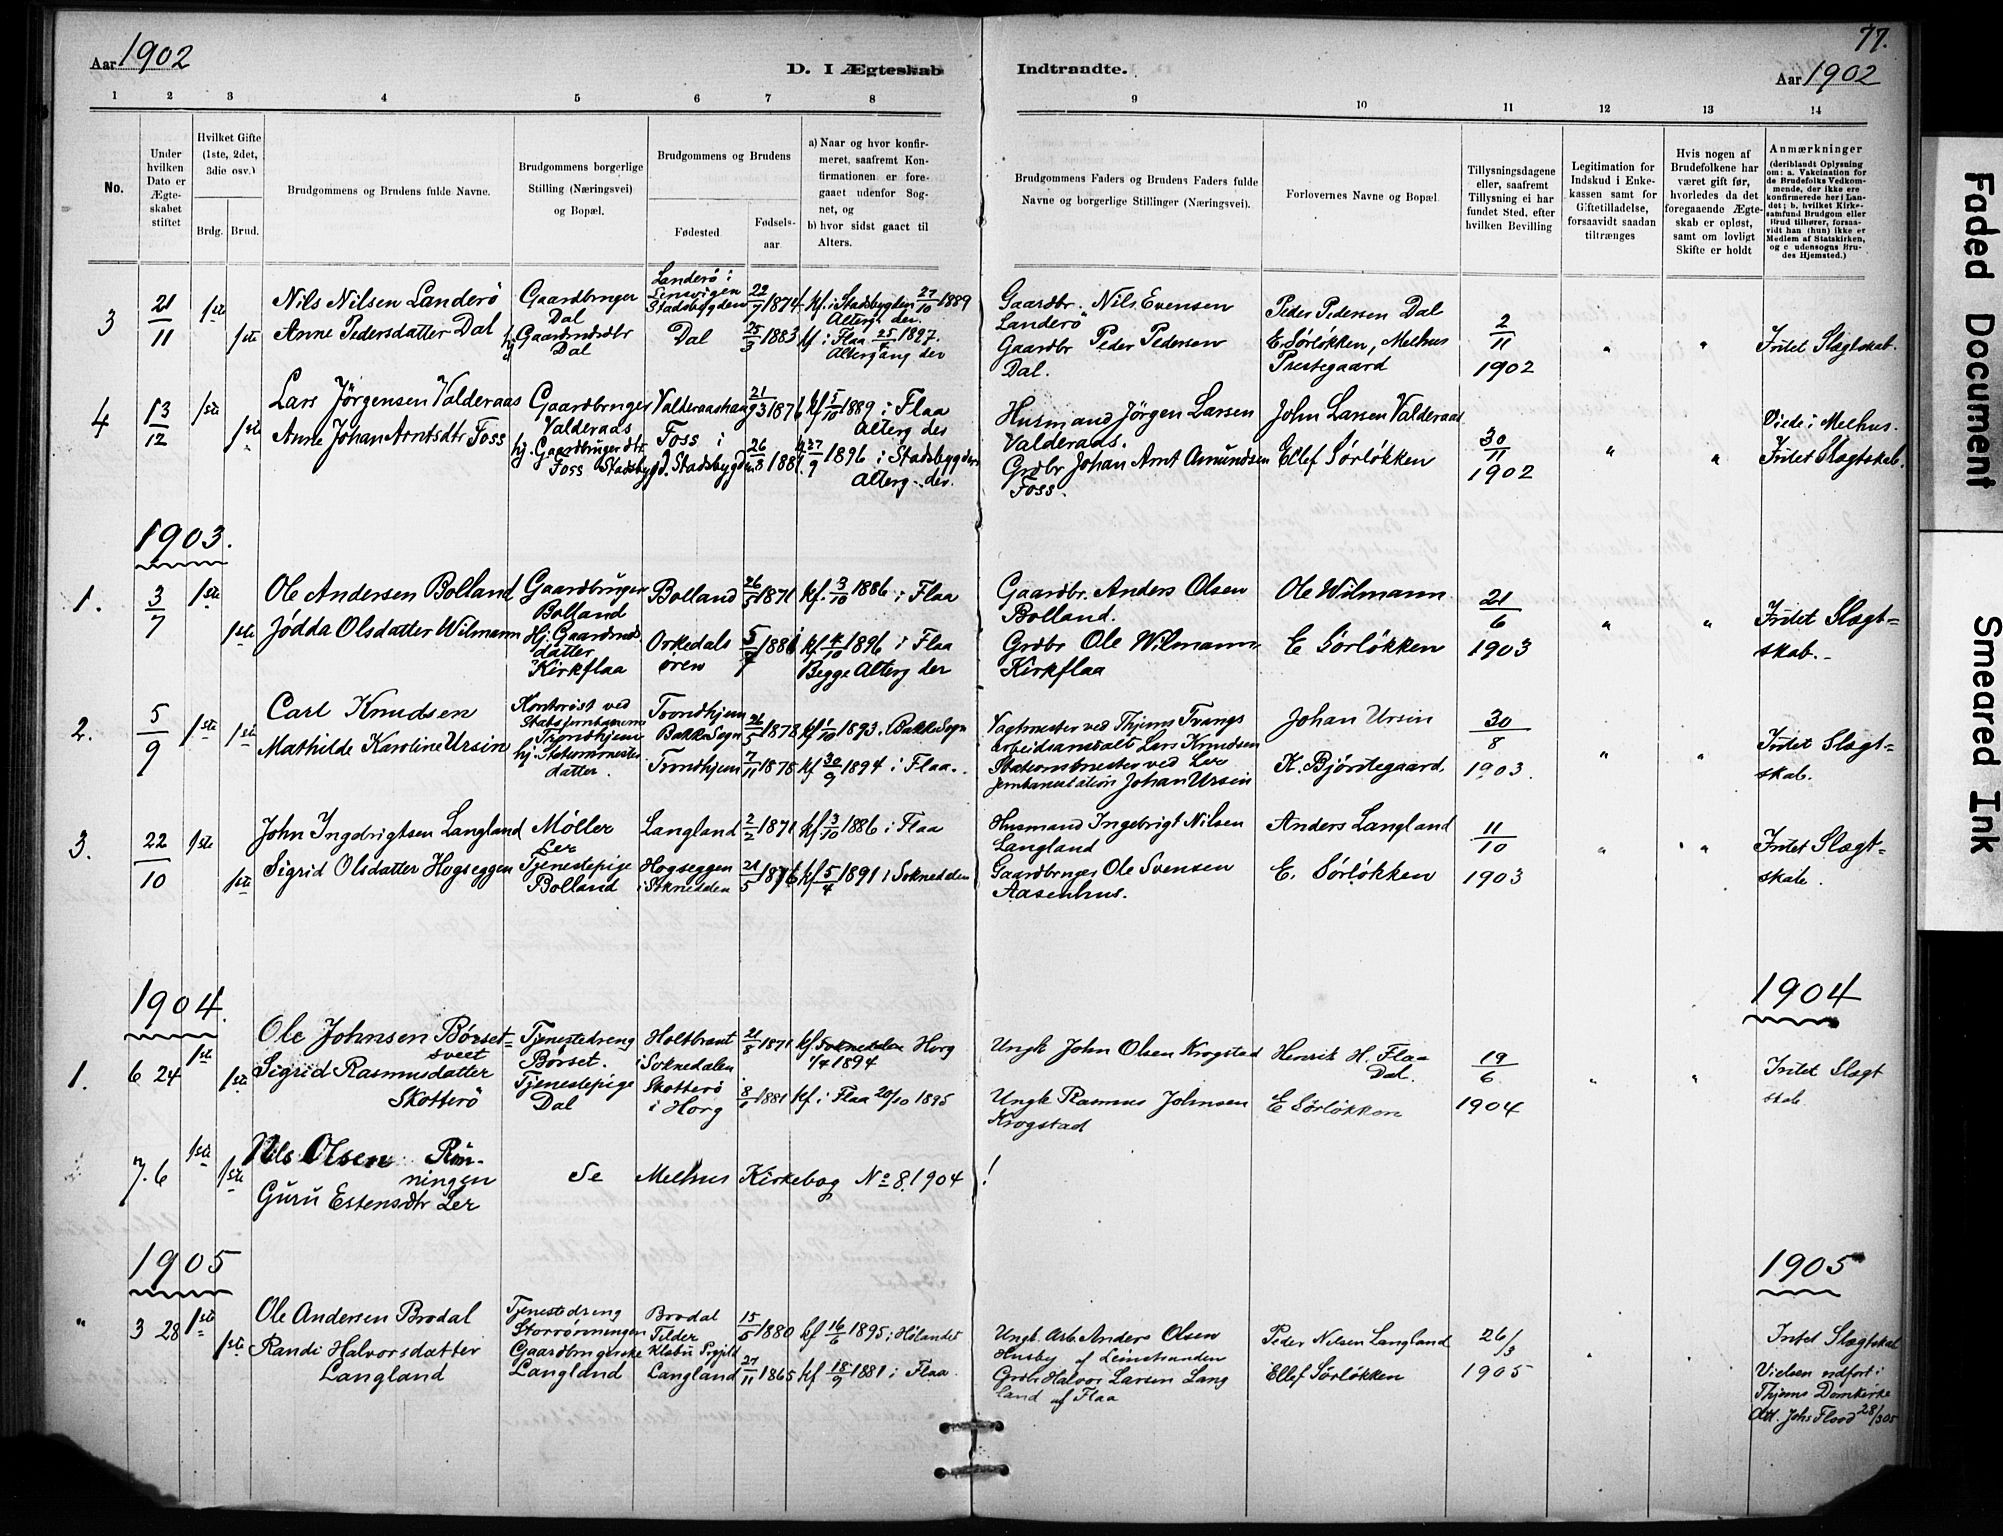 77.
Aar 1902
D. I Ægteskab Indtraadte.
Aar 1902
1 2 3 4 5 6 7 8 9 10 11 12 13 14
No.
Under hvilken Dato er Ægteskabet stiftet
Hvilket Gifte (1ste, 2det, 3die osv.)
Brdg. Brud.
Brudgommens og Brudens fulde Navne.
Brudgommens borgerlige Stilling (Næringsvei) og Bopæl.
Brudgommens og Brudens
Fødested. Fødselsaar
a) Naar og hvor konfirmeret, saafremt Konfirmationen er foregaaet udenfor Sognet, og
b) hvor sidst gaaet til Alters.
Brudgommens Faders og Brudens Faders fulde Navne og borgerlige Stillinger (Næringsvei).
Forlovernes Navne og Bopæl
Tillysningsdagene eller, saafremt Tillysning ei har fundet Sted, efter hvilken Bevilling
Legitimation for Indskud i Enkekassen samt for Giftetilladelse, forsaavidt saadan tiltrænges
Hvis nogen af Brudefolkene har været gift før, hvorledes da det foregaaende Ægteskab er opløst, samt om lovligt Skifte er holdt
Anmærkninger
(deriblandt Oplysning om: a. Vakcination for de Brudefolks Vedkommende, der ikke ere konfirmerede her i Landet; b. hvilket Kirkesamfund Brudgom eller Brud tilhører, forsaavidt han (hun) ikke er Medlem af Statskirken, og c udensogns Brudes Hjemsted.)
3 21/11 1ste Nils Nilsen Landerö Gaardbruger Dal Landerö i Lensvigen Stadsbygden 22/7 1874 kf. i Stadsbygden 27/10 1889 Alterg. der. Gaardbr. Nils Evensen Landerö Peder Pedersen Dal
1ste Anne Pedersdatter Dal Gaardmdsdtr Dal Dal 25/3 1883 kf i Flaa 25/4 1897. Altergang der Gaardbr Peder Pedersen Dal. E. Sörlökken, Melhus Prestegaard 2/11 1902 " " Intet Slægtskab.
4 13/12 1ste Lars Jörgensen Valderaas Gaardbruger Valderaas Valderaashaug 21/3 1871 kf 5/10 1889 i Flaa Alterg der Husmand Jörgen Larsen Valderaas. John Larsen Valderaas Viede i Melhus.
1ste Anne Johan Arntsdtr Foss hj. Gaardbrugerdtr. Foss Stadsbygd. Foss i Stadsbygden 26/8 1881 27/9 1896 i Stadsbygden Alterg. der. Grdbr Johan Arnt Amundsen Foss. Ellef Sörlökken 30/11 1902 " " Intet Slægtskab.
1903.
1. 3/7 1ste Ole Andersen Bolland Gaardbruger Bolland Bolland 26/5 1871 kf. 3/10 1886 i Flaa Gaardbr. Anders Olsen Bolland. Ole Wilmann 21/6 1903
1ste Jödda Olsdatter Wilmann Hj. Gaardmds datter Kirkflaa Orkedals ören 5/7 1881 kf 4/10 1896 i Flaa Begge Alterg der Grdbr Ole Wilmann Kirkflaa E Sörlökken " " Intet Slægtskab.
2. 5/9 1ste Carl Knudsen Kontorist ved Statsjernbanerne Trondhjem Trondhjem Bakke Sogn 26/5 1878 kf 1/10 1893. Bakke Sogn Vagtmester ved Thjems Tvangsarbeidsanstalt Lars Knudsen Johan Ursin 30/8 1903.
1ste Mathilde Karoline Ursin hj. Stationsmester datter. Trondhjem 7/11 1878 kf 30/9 1894 i Flaa. Stationsmester ved Ler Jernbanestation Johan Ursin K. Bjørstegaard " " Intet Slægtskab.
3. 22/10 1ste John Ingebrigtsen Langland Möller Ler Langland 2/2 1871 kf 3/10 1886 i Flaa Husmand Ingebrigt Nilsen Langland Anders Langland 11/10 1903
1ste Sigrid Olsdatter Hogseggen Tjenestepige Bolland Hogseggen i Soknedalen 21/5 1876 kf 5/4 1891 i Soknedalen Gaardbruger Ole Svensen Aasenhus. E. Sörlökken " " Intet Slægtskab.
1904. 1904
1. 6 24 1ste Ole Johnsen Börsetsveet Tjenestedreng Börset. Holtbrant i Soknedalen 21/8 1871 kf Soknedalen Horg 1/4 1894 Ungk John Olsen Krogstad Henrik H. Flaa Dal. 19/6 1904
1ste Sigrid Rasmusdatter Skotterö Tjenestepige Dal Skotterö i Horg 8/1 1881 kf i Flaa 20/10 1895 Ungk Rasmus Johnsen Krogstad E Sörlökken " " Intet Slægtskab
7. 6 1ste Nils Olsen Rönningen
1ste Guru Estensdtr Ler Se Melhus Kirkebog No 8. 1904 !
1905 1905
" 3 28 1ste Ole Andersen Brodal Tjenestedreng Storrönningen Brodal Tilder Klæbu Prgjeld 15/5 1880 kf 16/6 1895 i Hölandet Ungk. Arb. Anders Olsen Husby af Leinstranden Peder Nilsen Langland 26/3 1905 Intet Slægtskab
1ste Randi Halvorsdatter Langland Gaardbrugerske Langland Langland 27/11 1865 kf 18/9 1881 i Flaa. Grdb. Halvor Larsen Langland af Flaa Ellef Sörlökken Vielsen udført i Thjems Domkirke Att. Johs Flood 28/3 05
Faded Document
Smeared Ink